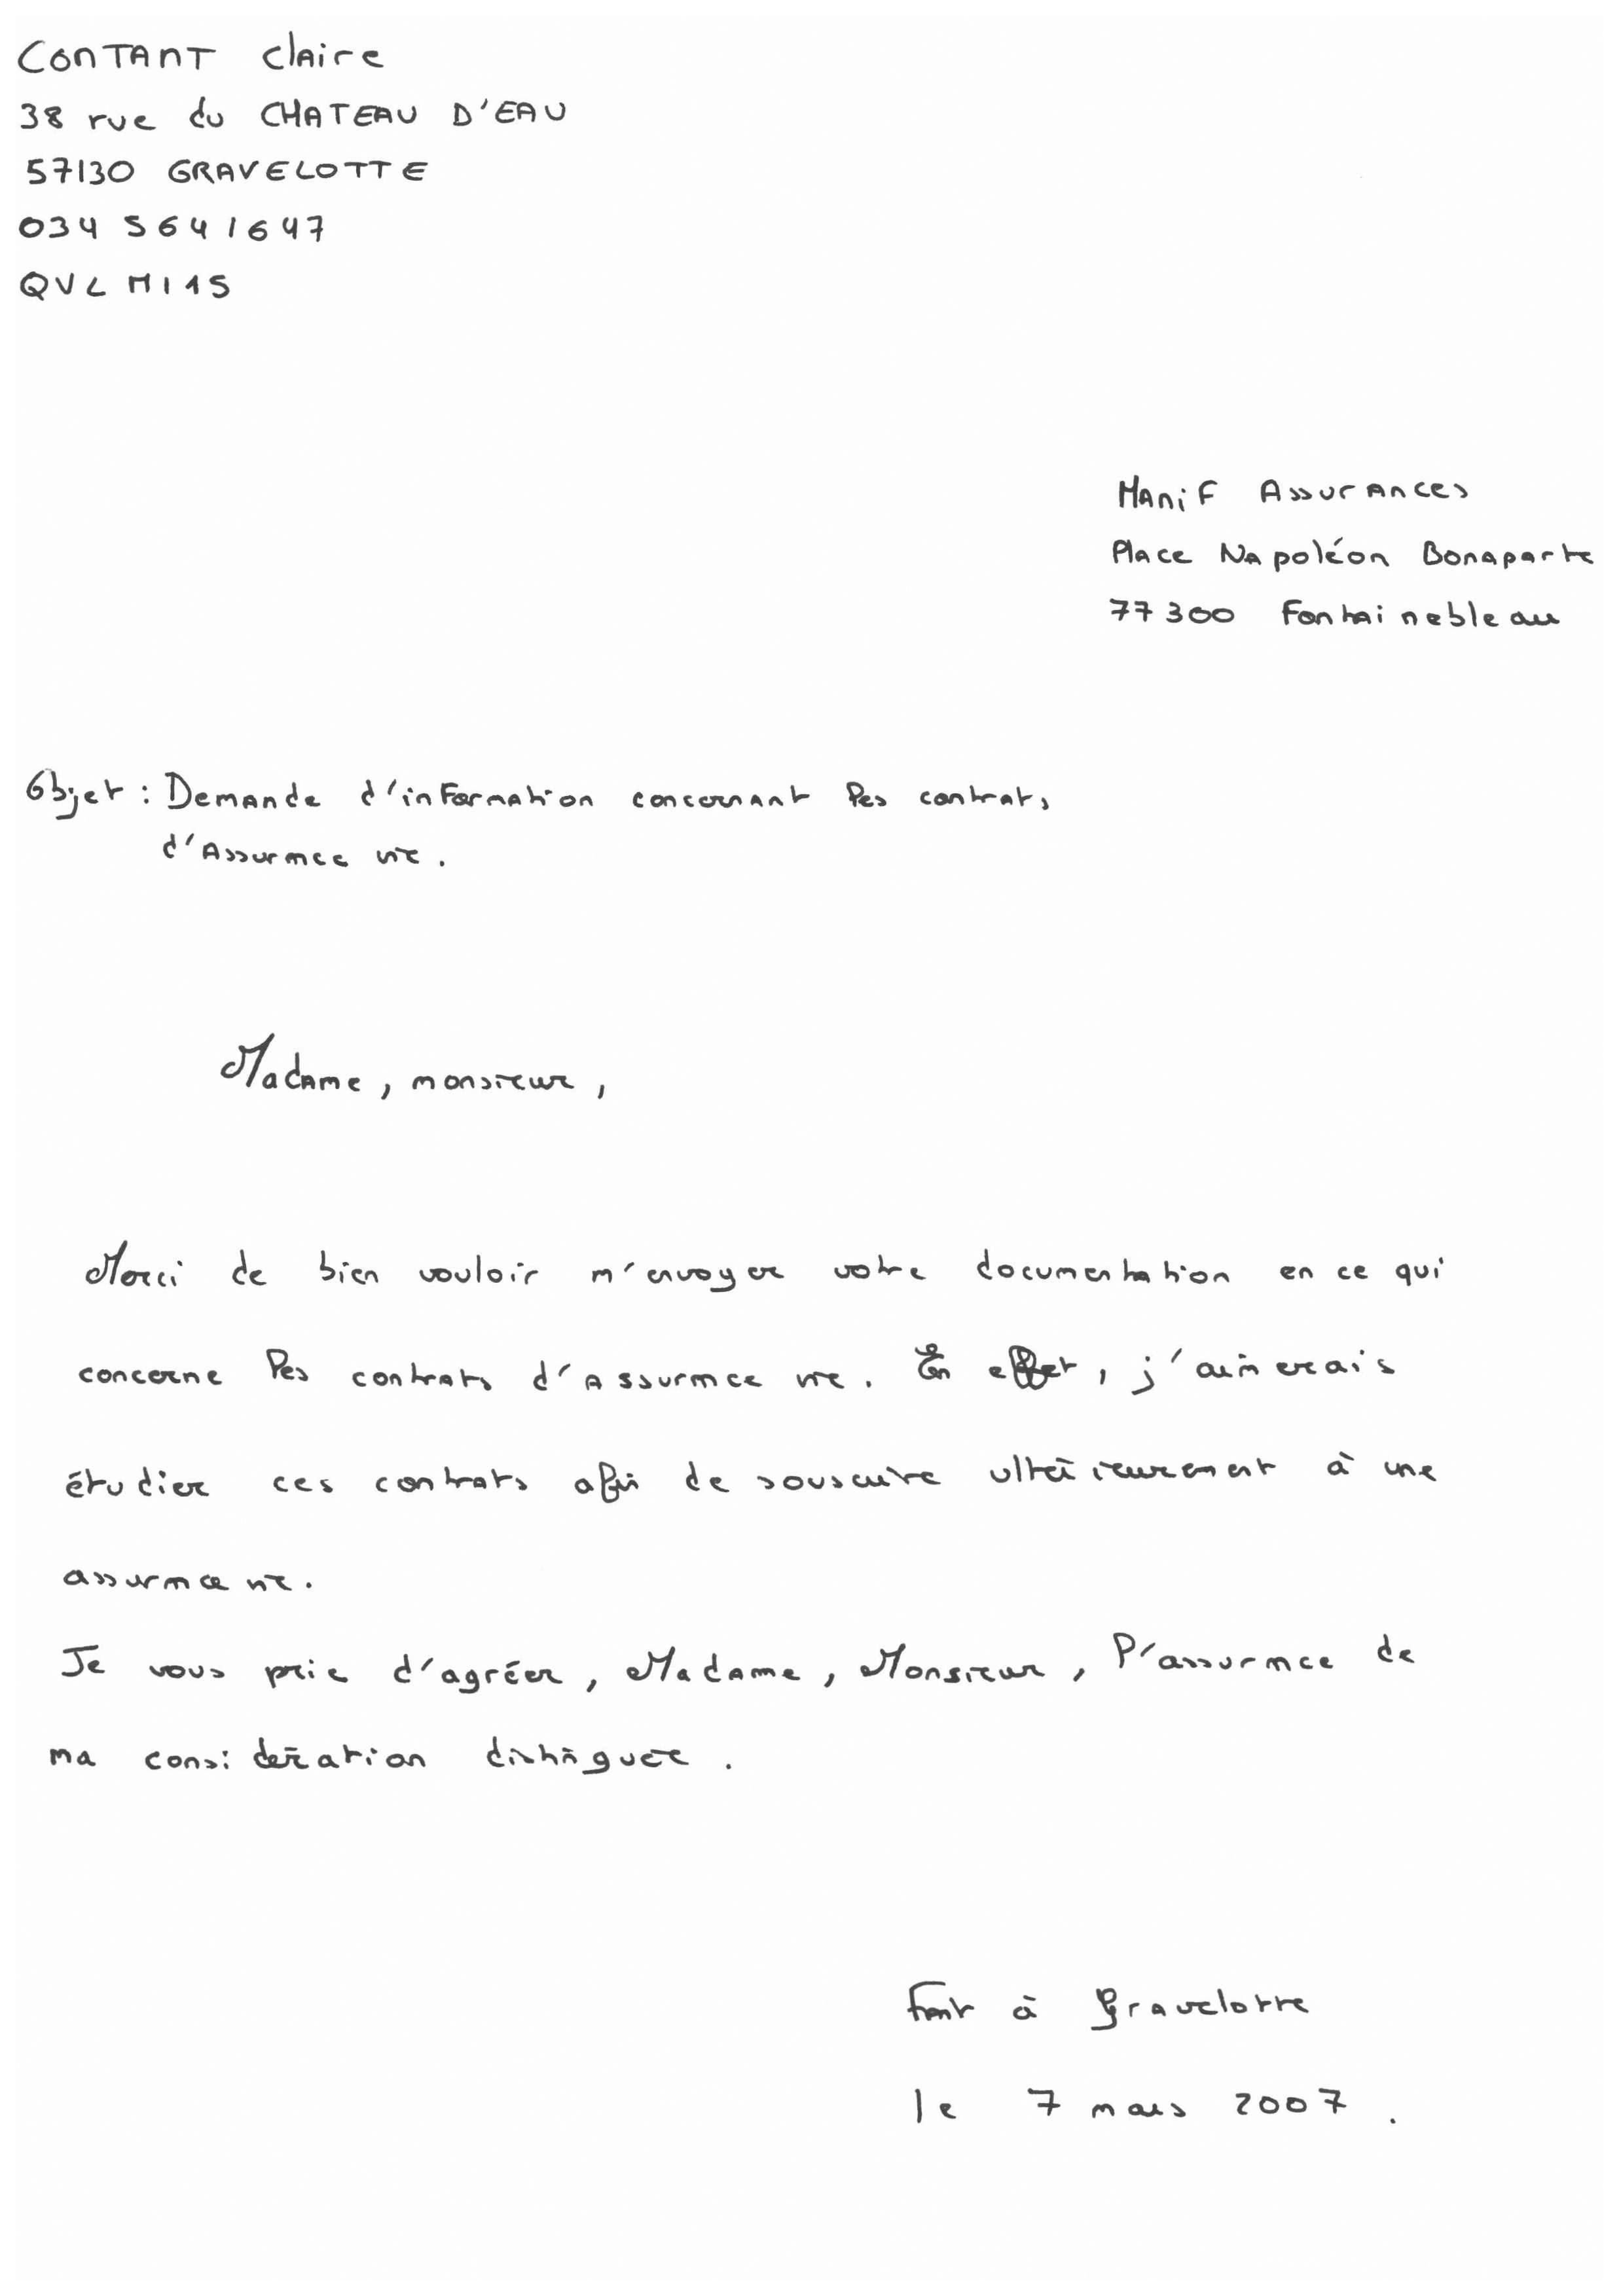 CONTANT Claire
38 rue du CHATEAU D'EAU
57130 GRAVELOTTE
034 5641647
QVLMI15
MANIF Assurances
Place Napoléon Bonaparte
77300 Fontainebleau
Objet : Demande d'information concernant les contrats
d'Assurance vie.
Madame, monsieur,
Merci de bien vouloir m'envoyer votre documentation en ce qui
concerne les contrats d'assurance vie. En effet, j'aimerais
étudier ces contrats afin de souscrire ultérieurement à une
assurance vie.
Je vous prie d'agréer, Madame, Monsieur, l'assurance de
ma considération distinguée.
Fait à Gravelotte
le 7 mars 2007.